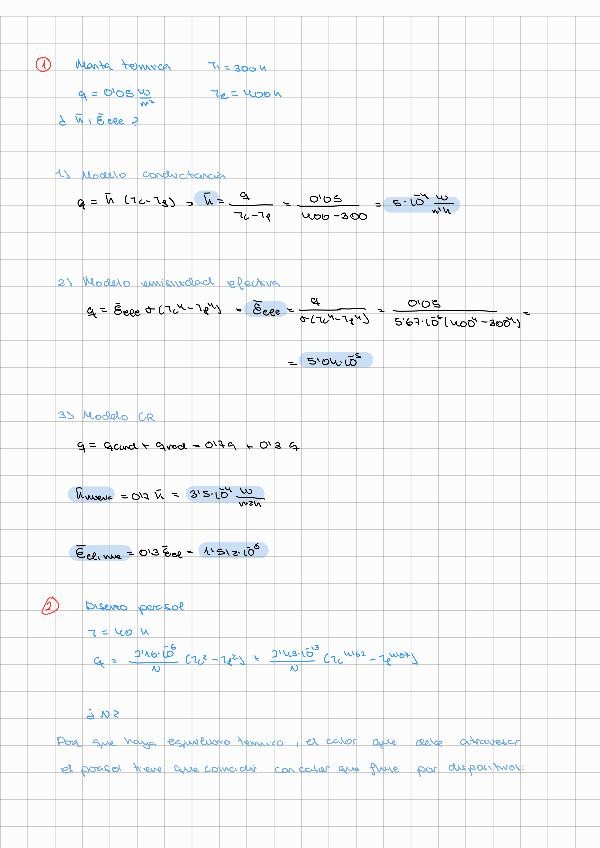 ① Manta termica T₁ = 300 K
q = 0'05 W/m² T₂ = 400 K
¿ h̄, ε̄eff ?
1) Modelo conductancia
q = h̄ (Tc - Tf) → h̄ = q / (Tc - Tf) = 0'05 / (400 - 300) = 5·10⁻⁴ W/m²K
2) Modelo emisividad efectiva
q = ε̄eff σ (Tc⁴ - Tf⁴) → ε̄eff = q / (σ (Tc⁴ - Tf⁴)) = 0'05 / (5'67·10⁻⁸ (400⁴ - 300⁴)) =
= 5'04·10⁻⁵
3) Modelo CR
q = qcond + qrad = 0'7q + 0'3 q
h̄nueva = 0'7 h̄ = 3'5·10⁻⁴ W/m²K
ε̄ef,nue = 0'3 ε̄ef = 1'512·10⁻⁵
② Diseño parasol
T = 40 K
(Tc² - Tf²) + (Tc⁴'⁶⁷ - Tf⁴'⁶⁷)
¿ N ?
Para que haya equilibrio termico, el calor que debe atravesar
el parasol tiene que coincidir con calor que fluye por dispositivos: